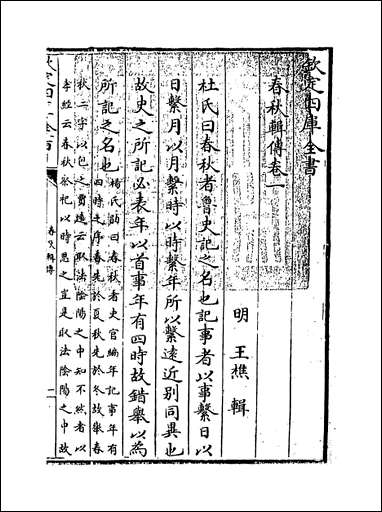 欽定四庫全書
春秋輯傳卷一
明 王樵 輯
杜氏曰春秋者魯史記之名也記事者以事繫日以
日繫月以月繫時以時繫年所以繫遠近別同異也
故史之所記必表年以首事年有四時故錯舉以為
所記之名也
楊氏勛曰春秋者史官編年記事年有
四時之序春先於夏秋先於冬故舉春
秋二字以包之賈逵云取法陰陽之中知不然者以
孝經云春秋祭祀以時思之豈是取法陰陽之中故
春秋輯傳